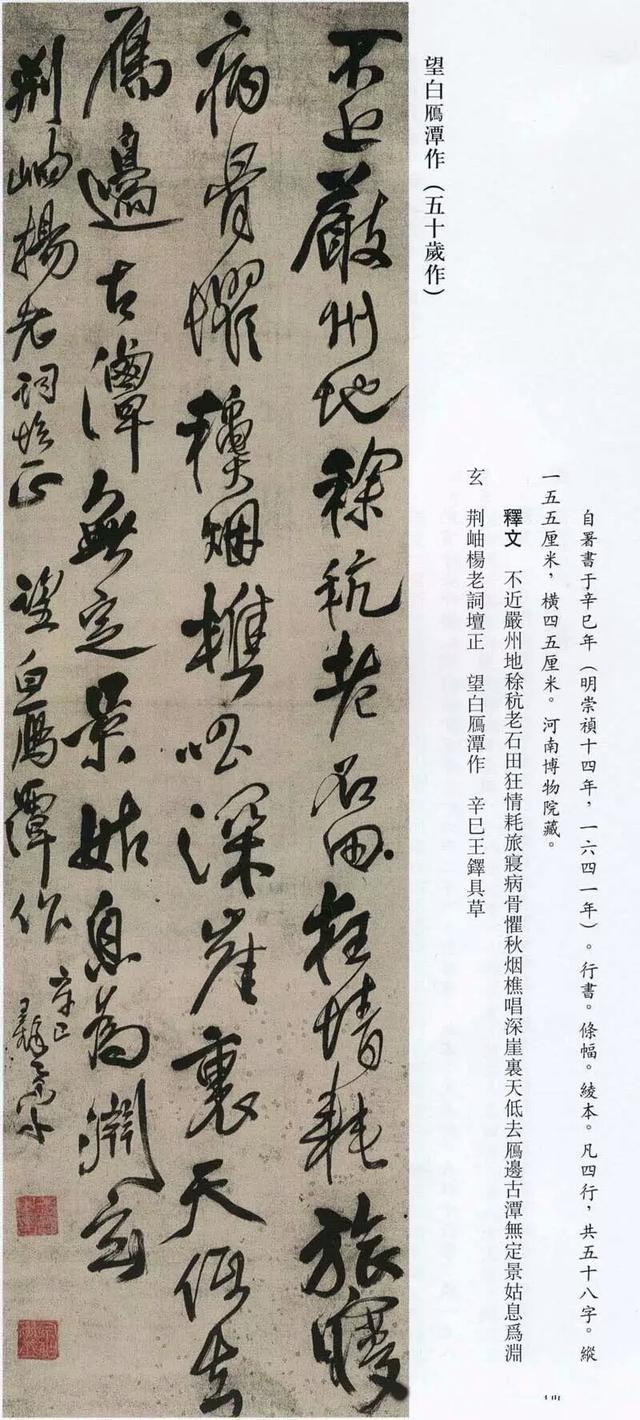 望白鴈潭作(五十歲作)
自署書于辛巳年(明崇禎十四年,一六四一年)。行書。條幅。綾本。凡四行,共五十八字。縱
一五五厘米,橫四五厘米。河南博物院藏。
釋文 不近嚴州地稌秔老石田狂情耗旅寢病骨懼秋烟樵唱深崖裏天低去鴈邊古潭無定景姑息爲淵
玄 荆岫楊老詞壇正 望白鴈潭作 辛巳王鐸具草
不近嚴州地稌秔老石田狂情耗旅寢
病骨懼穐烟樵唱深崖裏天低去
鴈邊古潭無定景姑息為淵玄
荆岫楊老詞壇正 望白鴈潭作 辛巳王鐸具草